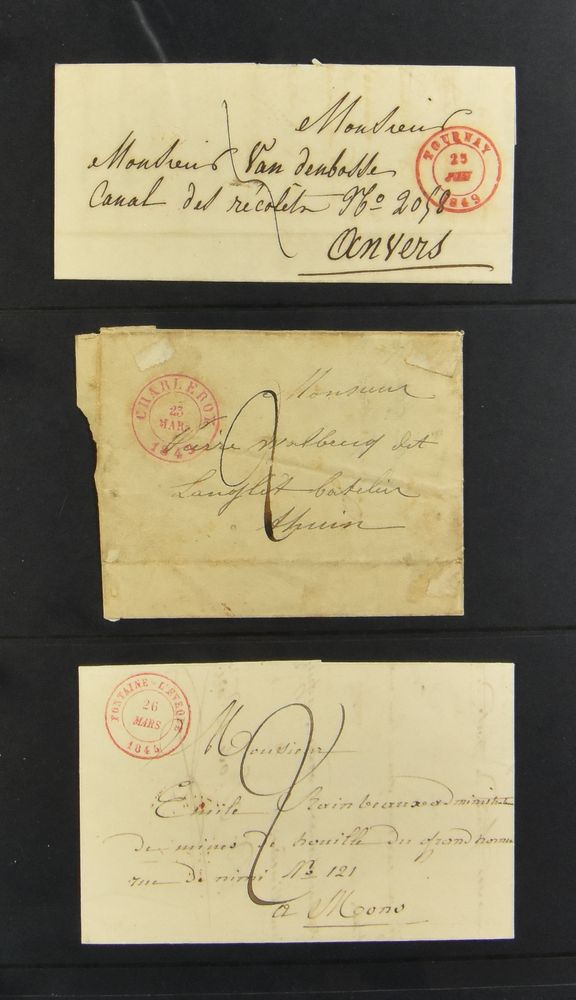 Monsieur
Monsieur Van denbosse
Canal des récolets No 2058
Anvers
TOURNAY
25
1849
CHARLEROY
23
MARS
184
2
Monsieur
dit
batelier
thuin
FONTAINE-L'EVEQUE
26
MARS
1845
2
Monsieur
Emile Rainbeaux administ
de mines de houille du grand hornu
rue de nimi No 121
a Mons